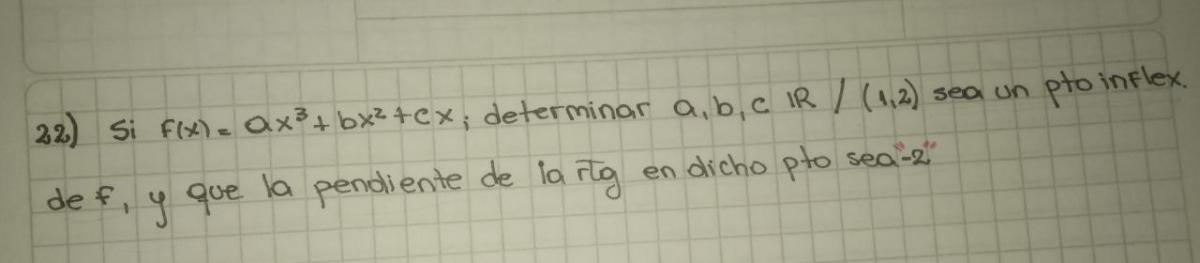 22) Si f(x) = ax³ + bx² + cx; determinar a, b, c IR / (1,2) sea un pto inflex.
de f, y que la pendiente de la rTg en dicho pto sea "-2"